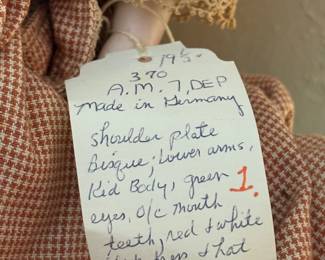 19½"
370
A.M. 7, DEP
Made in Germany
shoulder plate
Bisque, lower arms,
Kid Body, green
1.
eyes, o/c mouth
teeth, red & white
dress & hat